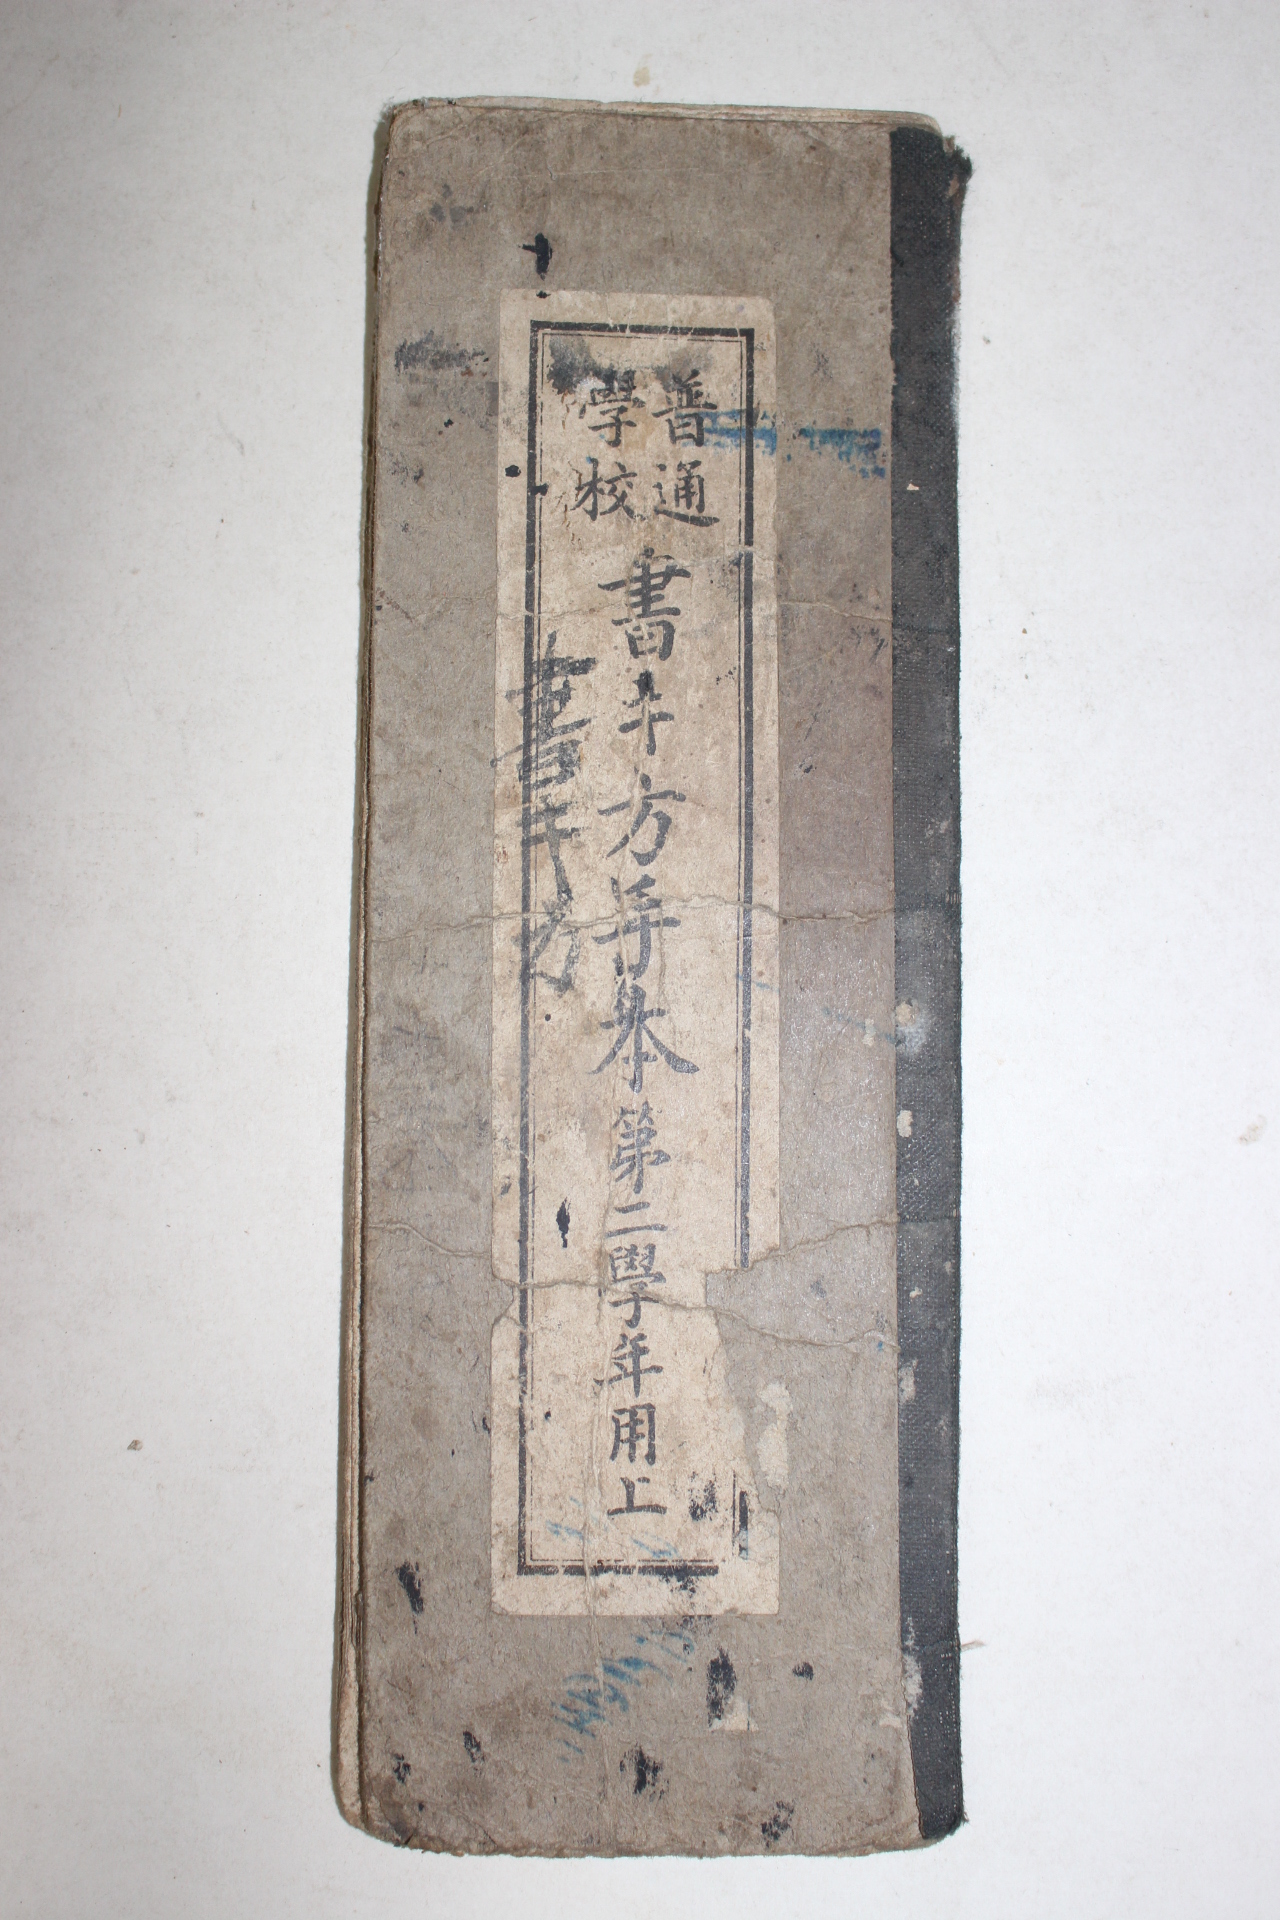 普通
學校
書キ方手本第二學年用上
書キ方